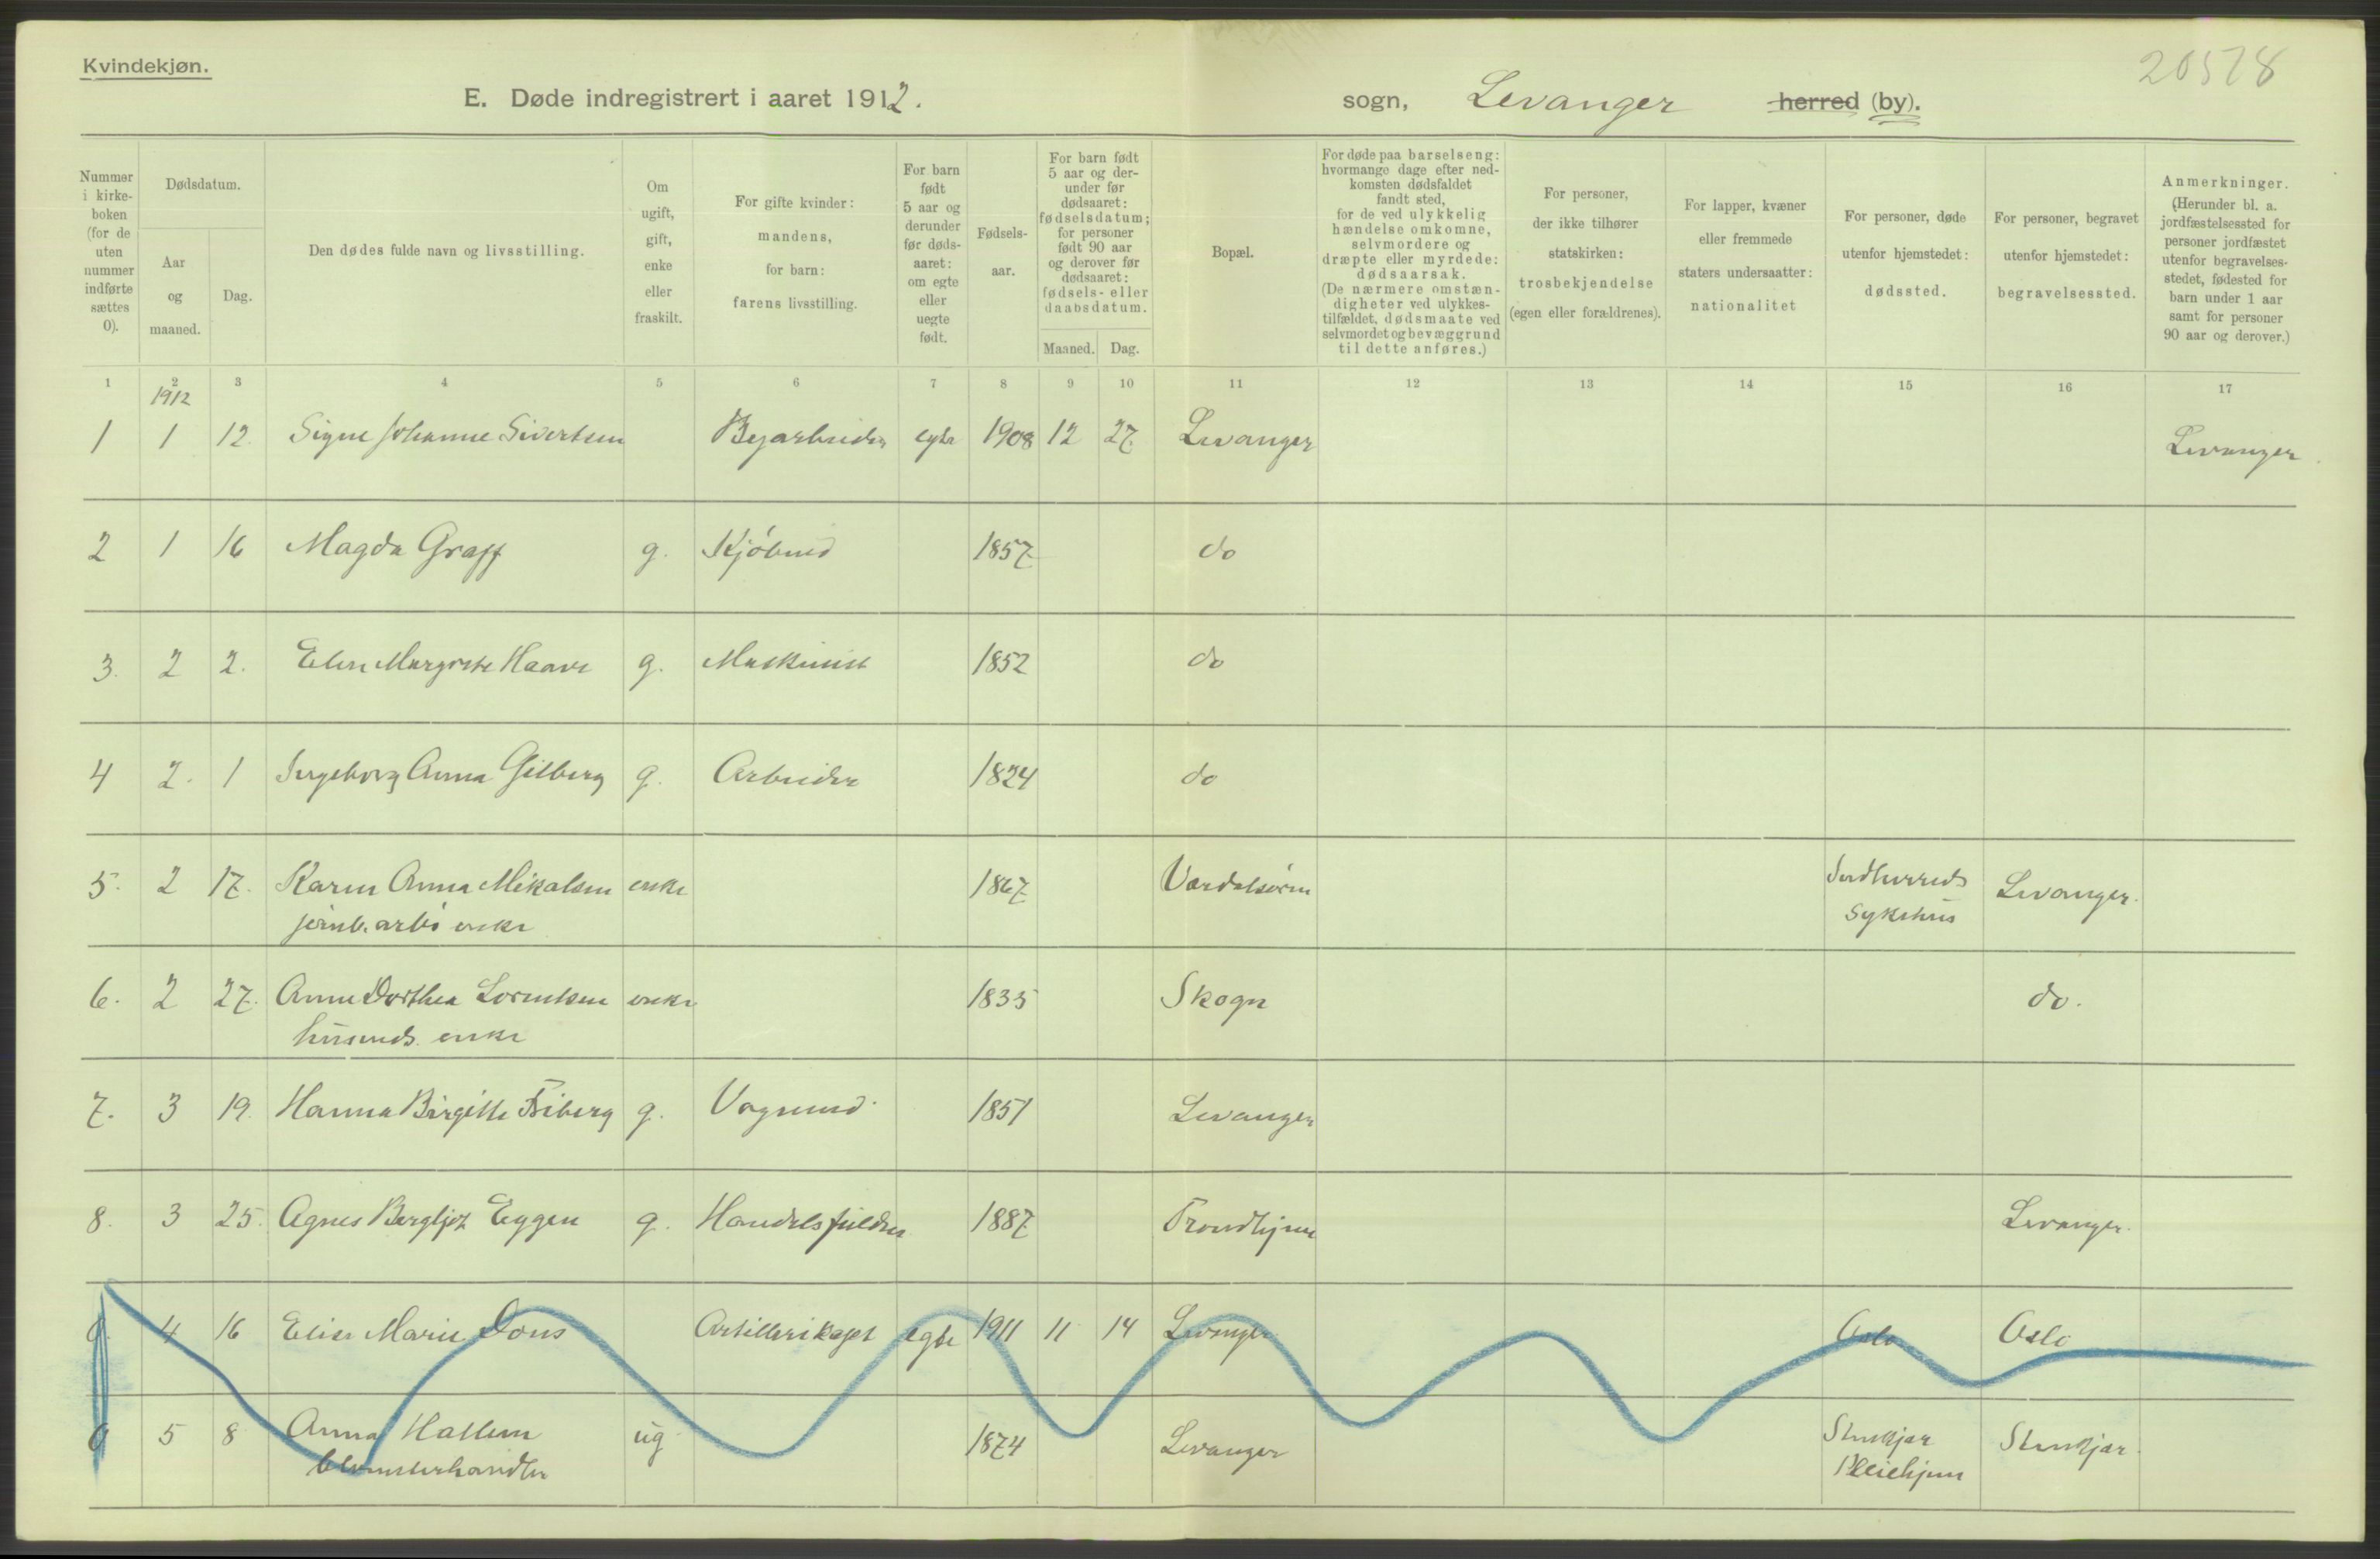 Kvindekjøn.
20578
E. Døde indregistrert i aaret 1912. sogn, Levanger herred (by).
Nummer i kirkeboken (for de uten nummer indførte sættes 0).
Dødsdatum.
Aar og maaned.
Dag.
Den dødes fulde navn og livsstilling.
Om ugift, gift, enke eller fraskilt.
For gifte kvinder: mandens, for barn: farens livsstilling.
For barn født 5 aar og derunder før dødsaaret: om egte eller uegte født.
Fødselsaar.
For barn født 5 aar og derunder før dødsaaret: fødselsdatum; for personer født 90 aar og derover før dødsaaret: fødsels- eller daabsdatum.
Maaned. Dag.
Bopæl.
For døde paa barselseng: hvormange dage efter nedkomsten dødsfaldet fandt sted, for de ved ulykkelig hændelse omkomne, selvmordere og dræpte eller myrdede: dødsaarsak. (De nærmere omstændigheter ved ulykkestilfældet, dødsmaate ved selvmordet og bevæggrund til dette anføres.)
For personer, der ikke tilhører statskirken: trosbekjendelse (egen eller forældrenes).
For lapper, kvæner eller fremmede staters undersaatter: nationalitet
For personer, døde utenfor hjemstedet: dødssted.
For personer, begravet utenfor hjemstedet: begravelsessted.
Anmerkninger. (Herunder bl. a. jordfæstelsessted for personer jordfæstet utenfor begravelsesstedet, fødested for barn under 1 aar samt for personer 90 aar og derover.)
1 2 3 4 5 6 7 8 9 10 11 12 13 14 15 16 17
1912
1 1 12. Signe Johanne Sivertsen Byarbeider egte 1908 12 27. Levanger Levanger
2 1 16 Magda Graff g. Kjøbmd 1857. do
3. 2 2. Elen Margrete Haave g. Maskinist 1852 do
4 2. 1 Ingeborg Anna Gilberg g. Arbeider 1824 do
5. 2 17. Karen Anna Mikalsen enke 1867. Værdalsøren Indherreds Levanger.
jernb. arbs enke sykehus
6. 2 27. Anne Dorthea Lorentsen enke 1835 Skogn do.
husmds. enke
7. 3 19. Hanna Birgitte Friberg g. Vognmd. 1851 Levanger
8. 3 25. Agnes Bergljot Eggen g. Handelsfuldm 1887. Trondhjem Levanger.
0. 4 16 Elise Marie Dons Artillerikapt egte 1911 11 14 Levanger Oslo Oslo
0 5 8 Anna Hallem ug 1874 Levanger Stenkjær Stenkjær.
blomsterhandler Pleiehjem